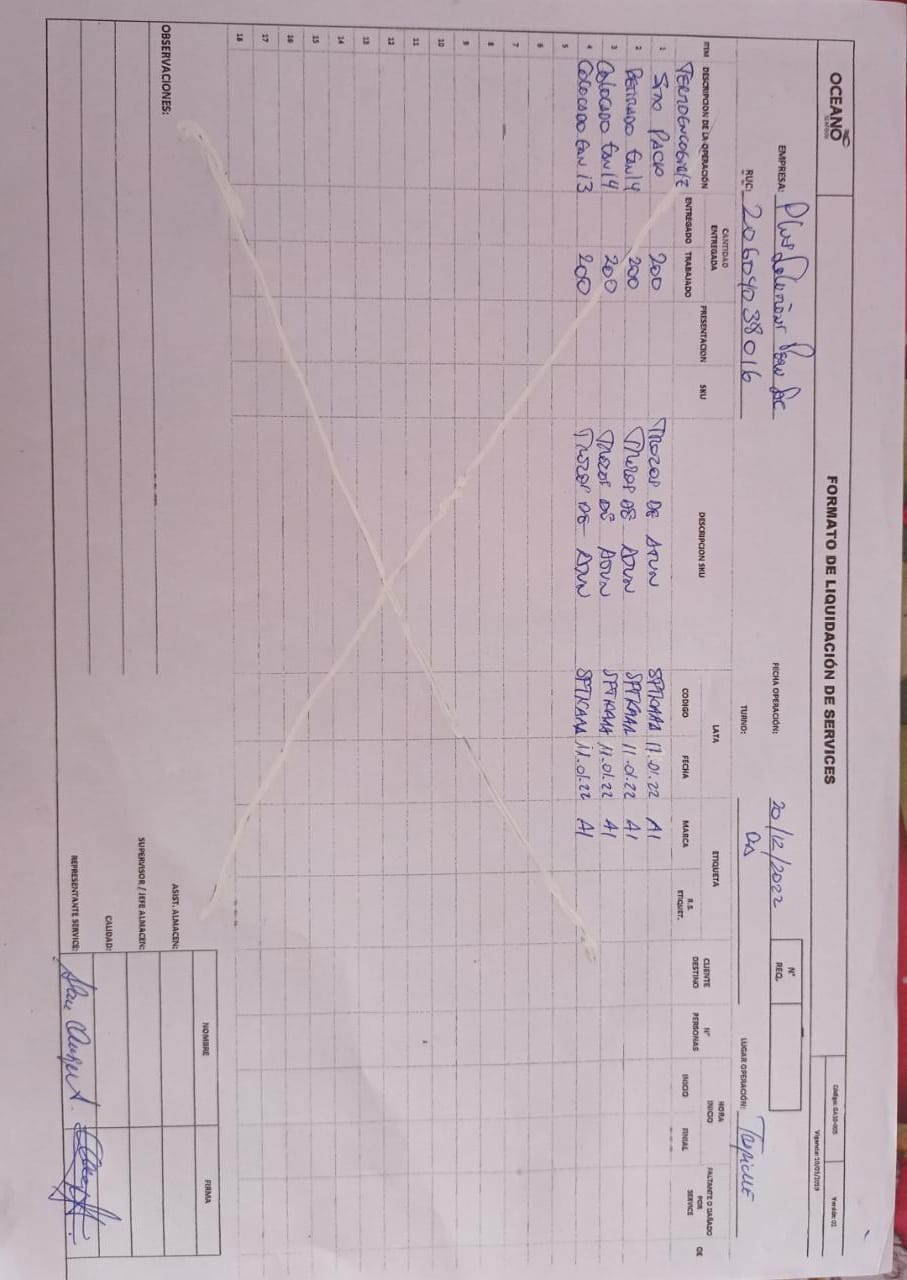 OCEANO
SEAFOOD
FORMATO DE LIQUIDACIÓN DE SERVICES
Código: GA10-005
Versión: 01
Vigencia: 10/01/2019
EMPRESA: Plus Peru SAC
FECHA OPERACIÓN: 20/12/2022
N° REQ.
LUGAR OPERACIÓN:
RUC: 20604038016
TURNO: DIA
ITEM DESCRIPCION DE LA OPERACIÓN CANTIDAD ENTREGADA ENTREGADO TRABAJADO PRESENTACION SKU DESCRIPCION SKU LATA CODIGO FECHA ETIQUETA MARCA R.S. ETIQUET. CLIENTE DESTINO N° PERSONAS HORA INICIO INICIO FINAL FALTANTE O DAÑADO POR SERVICE OK
1 SIX PACK 200 TROZOS DE ATUN 11.01.22 A1
2 RETIRADO EAN 14 200 TROZOS DE ATUN 11.01.22 A1
3 COLOCADO EAN 14 200 TROZOS DE ATUN 11.01.22 A1
4 COLOCADO EAN 13 200 TROZOS DE ATUN 11.01.22 A1
5
6
7
8
9
10
11
12
13
14
15
16
17
18
OBSERVACIONES:
NOMBRE
FIRMA
ASIST. ALMACEN:
SUPERVISOR / JEFE ALMACEN:
CALIDAD:
REPRESENTANTE SERVICE: